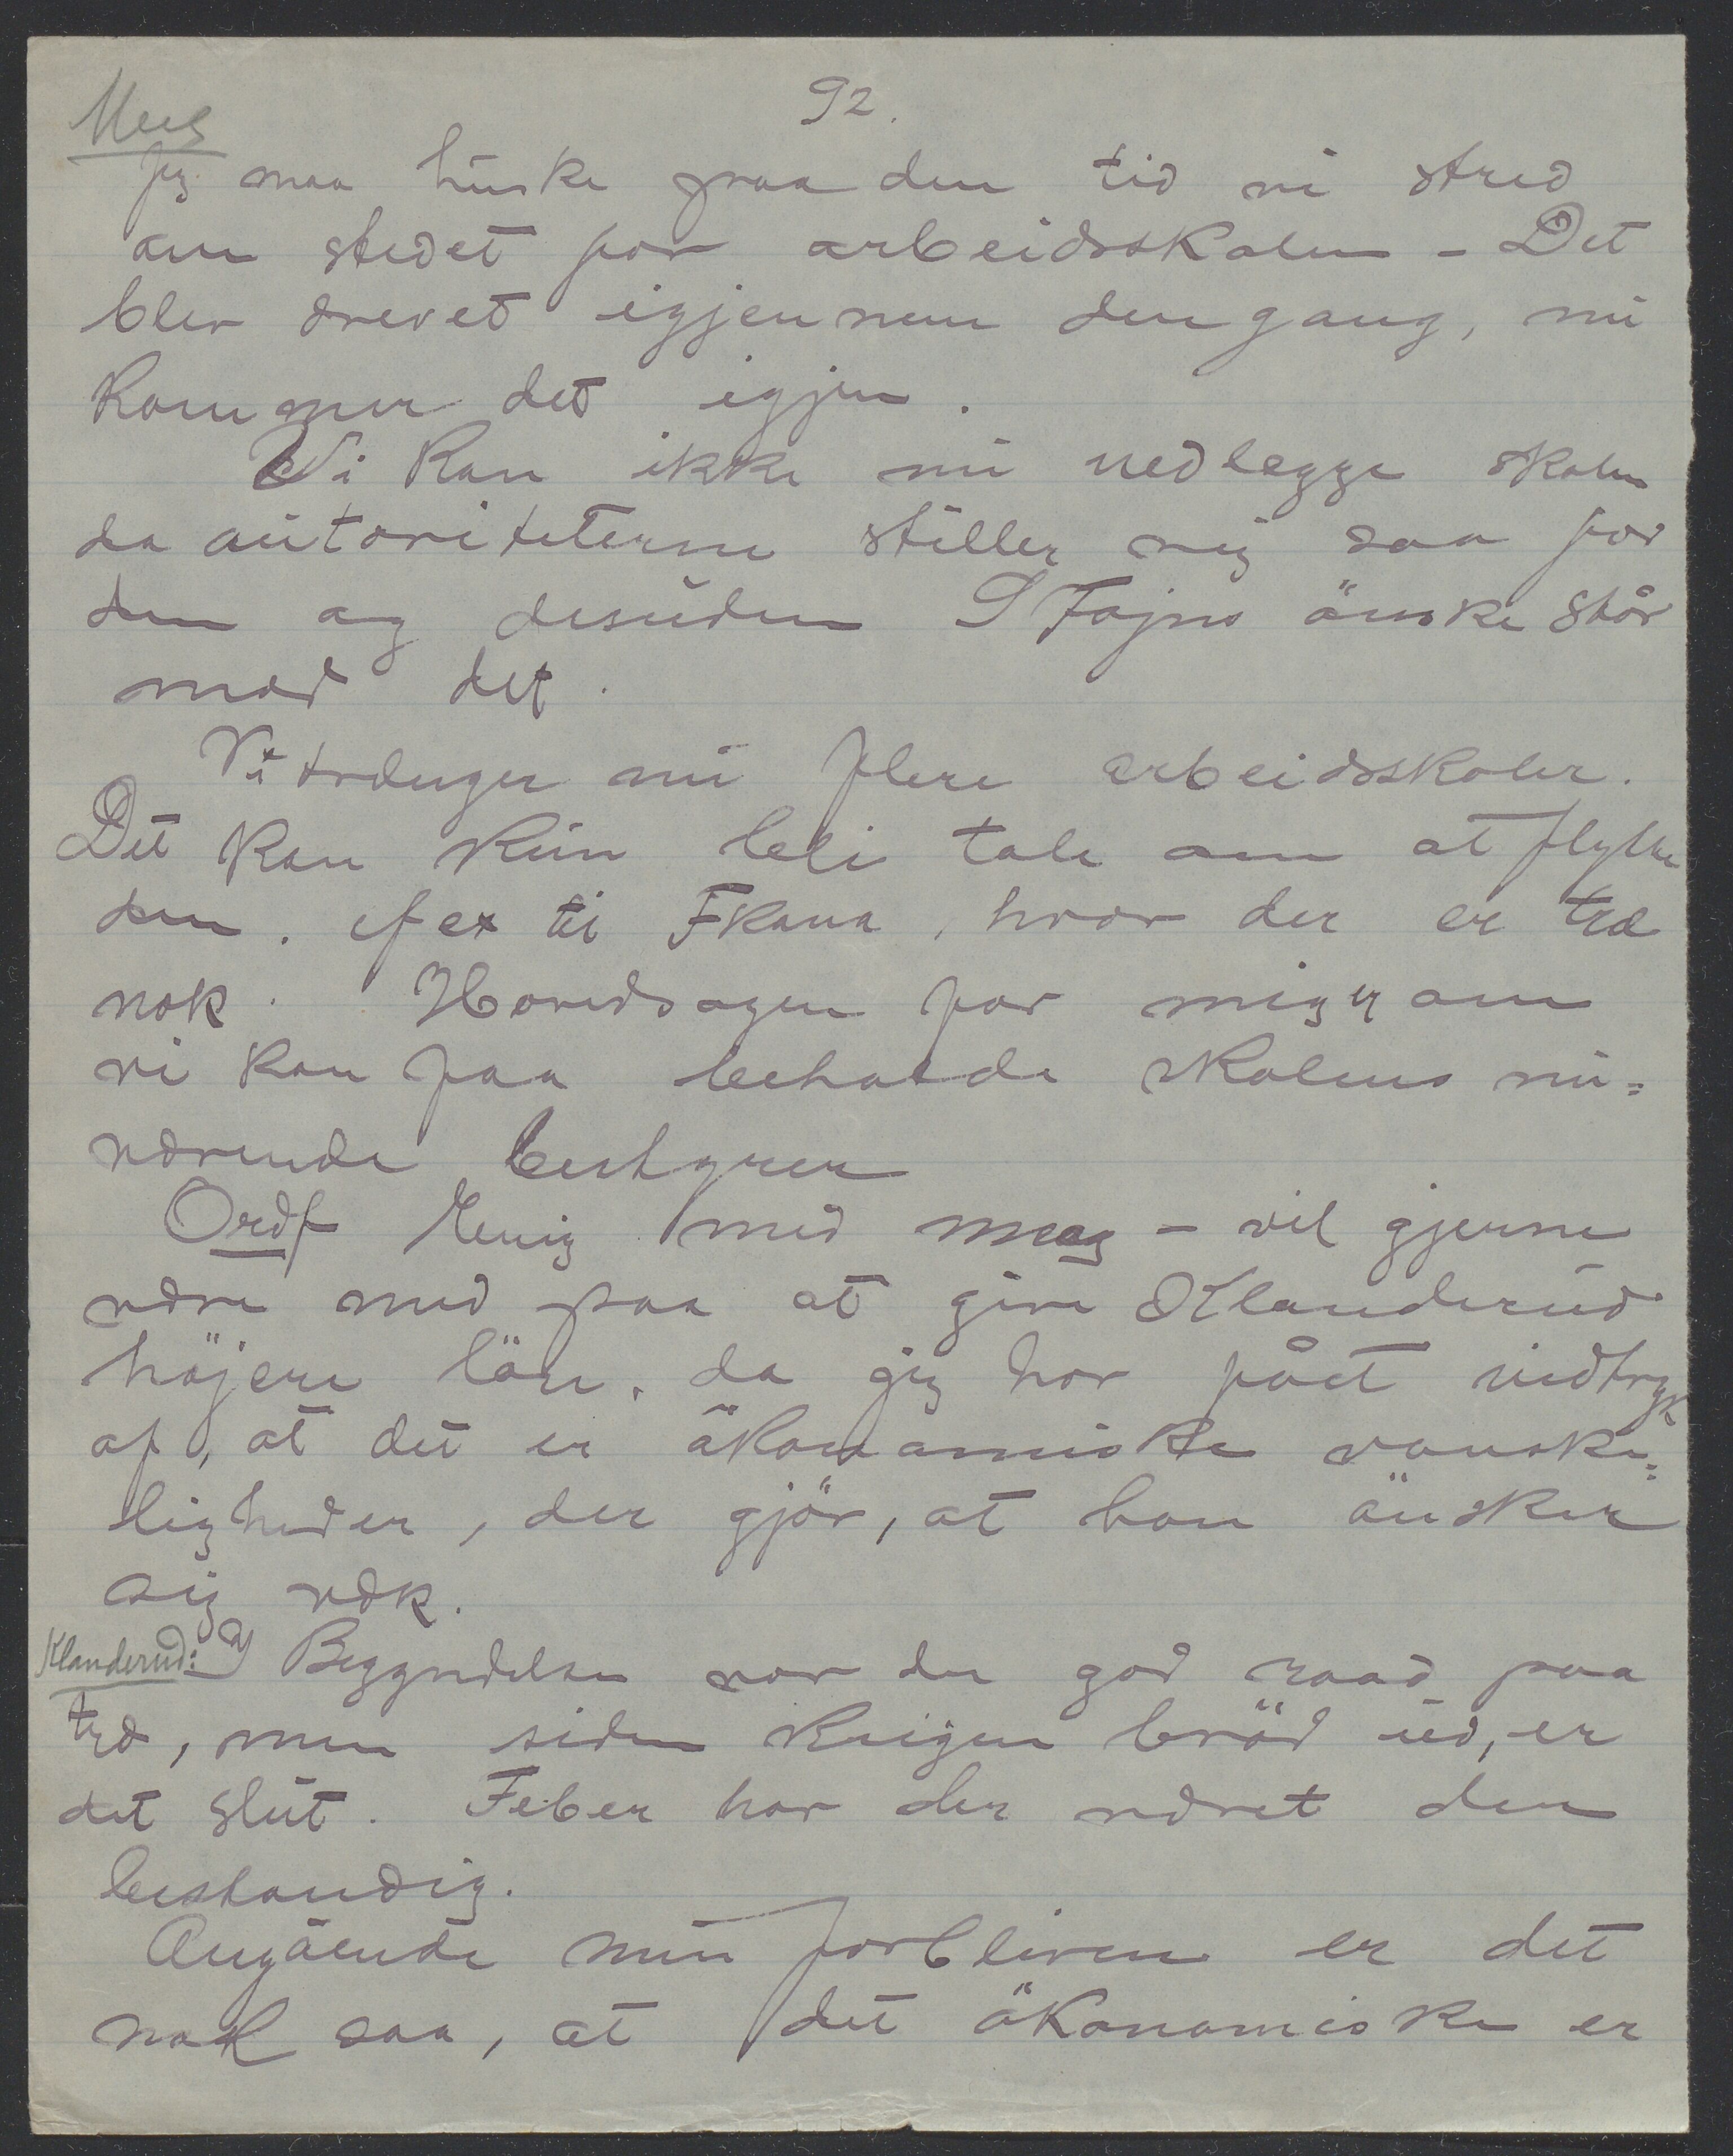 92.
Meeg
Jeg maa huske paa den tid vi stred
om stedet for arbeidsskolen - Det
blev drevet igjennem dengang, nu
kommer det igjen.
Vi kan ikke nu nedlegge skolen
da autoriteterne stiller sig saa for
den og desuden STojns önske står
mod det.
Vi trænger nu flere arbeidsskoler.
Det kan kun bli tale om at flytte
den. f ex til Fkana, hvor der er træ
nok. Hovedsagen for mig er om
vi kan faa beholde skolens nu=
værende bestyrer
Ordf Enig med Meeg - vil gjerne
være med paa at give Klanderud
höjere lön, da jeg har fåét indtryk
af, at det er ökonomiske vanske=
ligheder, der gjör, at han önsker
sig væk.
Klanderud: I Begyndelsen var der god raad paa
træ, men siden krigen bröd ud, er
det slut. Feber har der været den
bestandig.
Angående min forbliven er det
nok saa, at det ökonomiske er